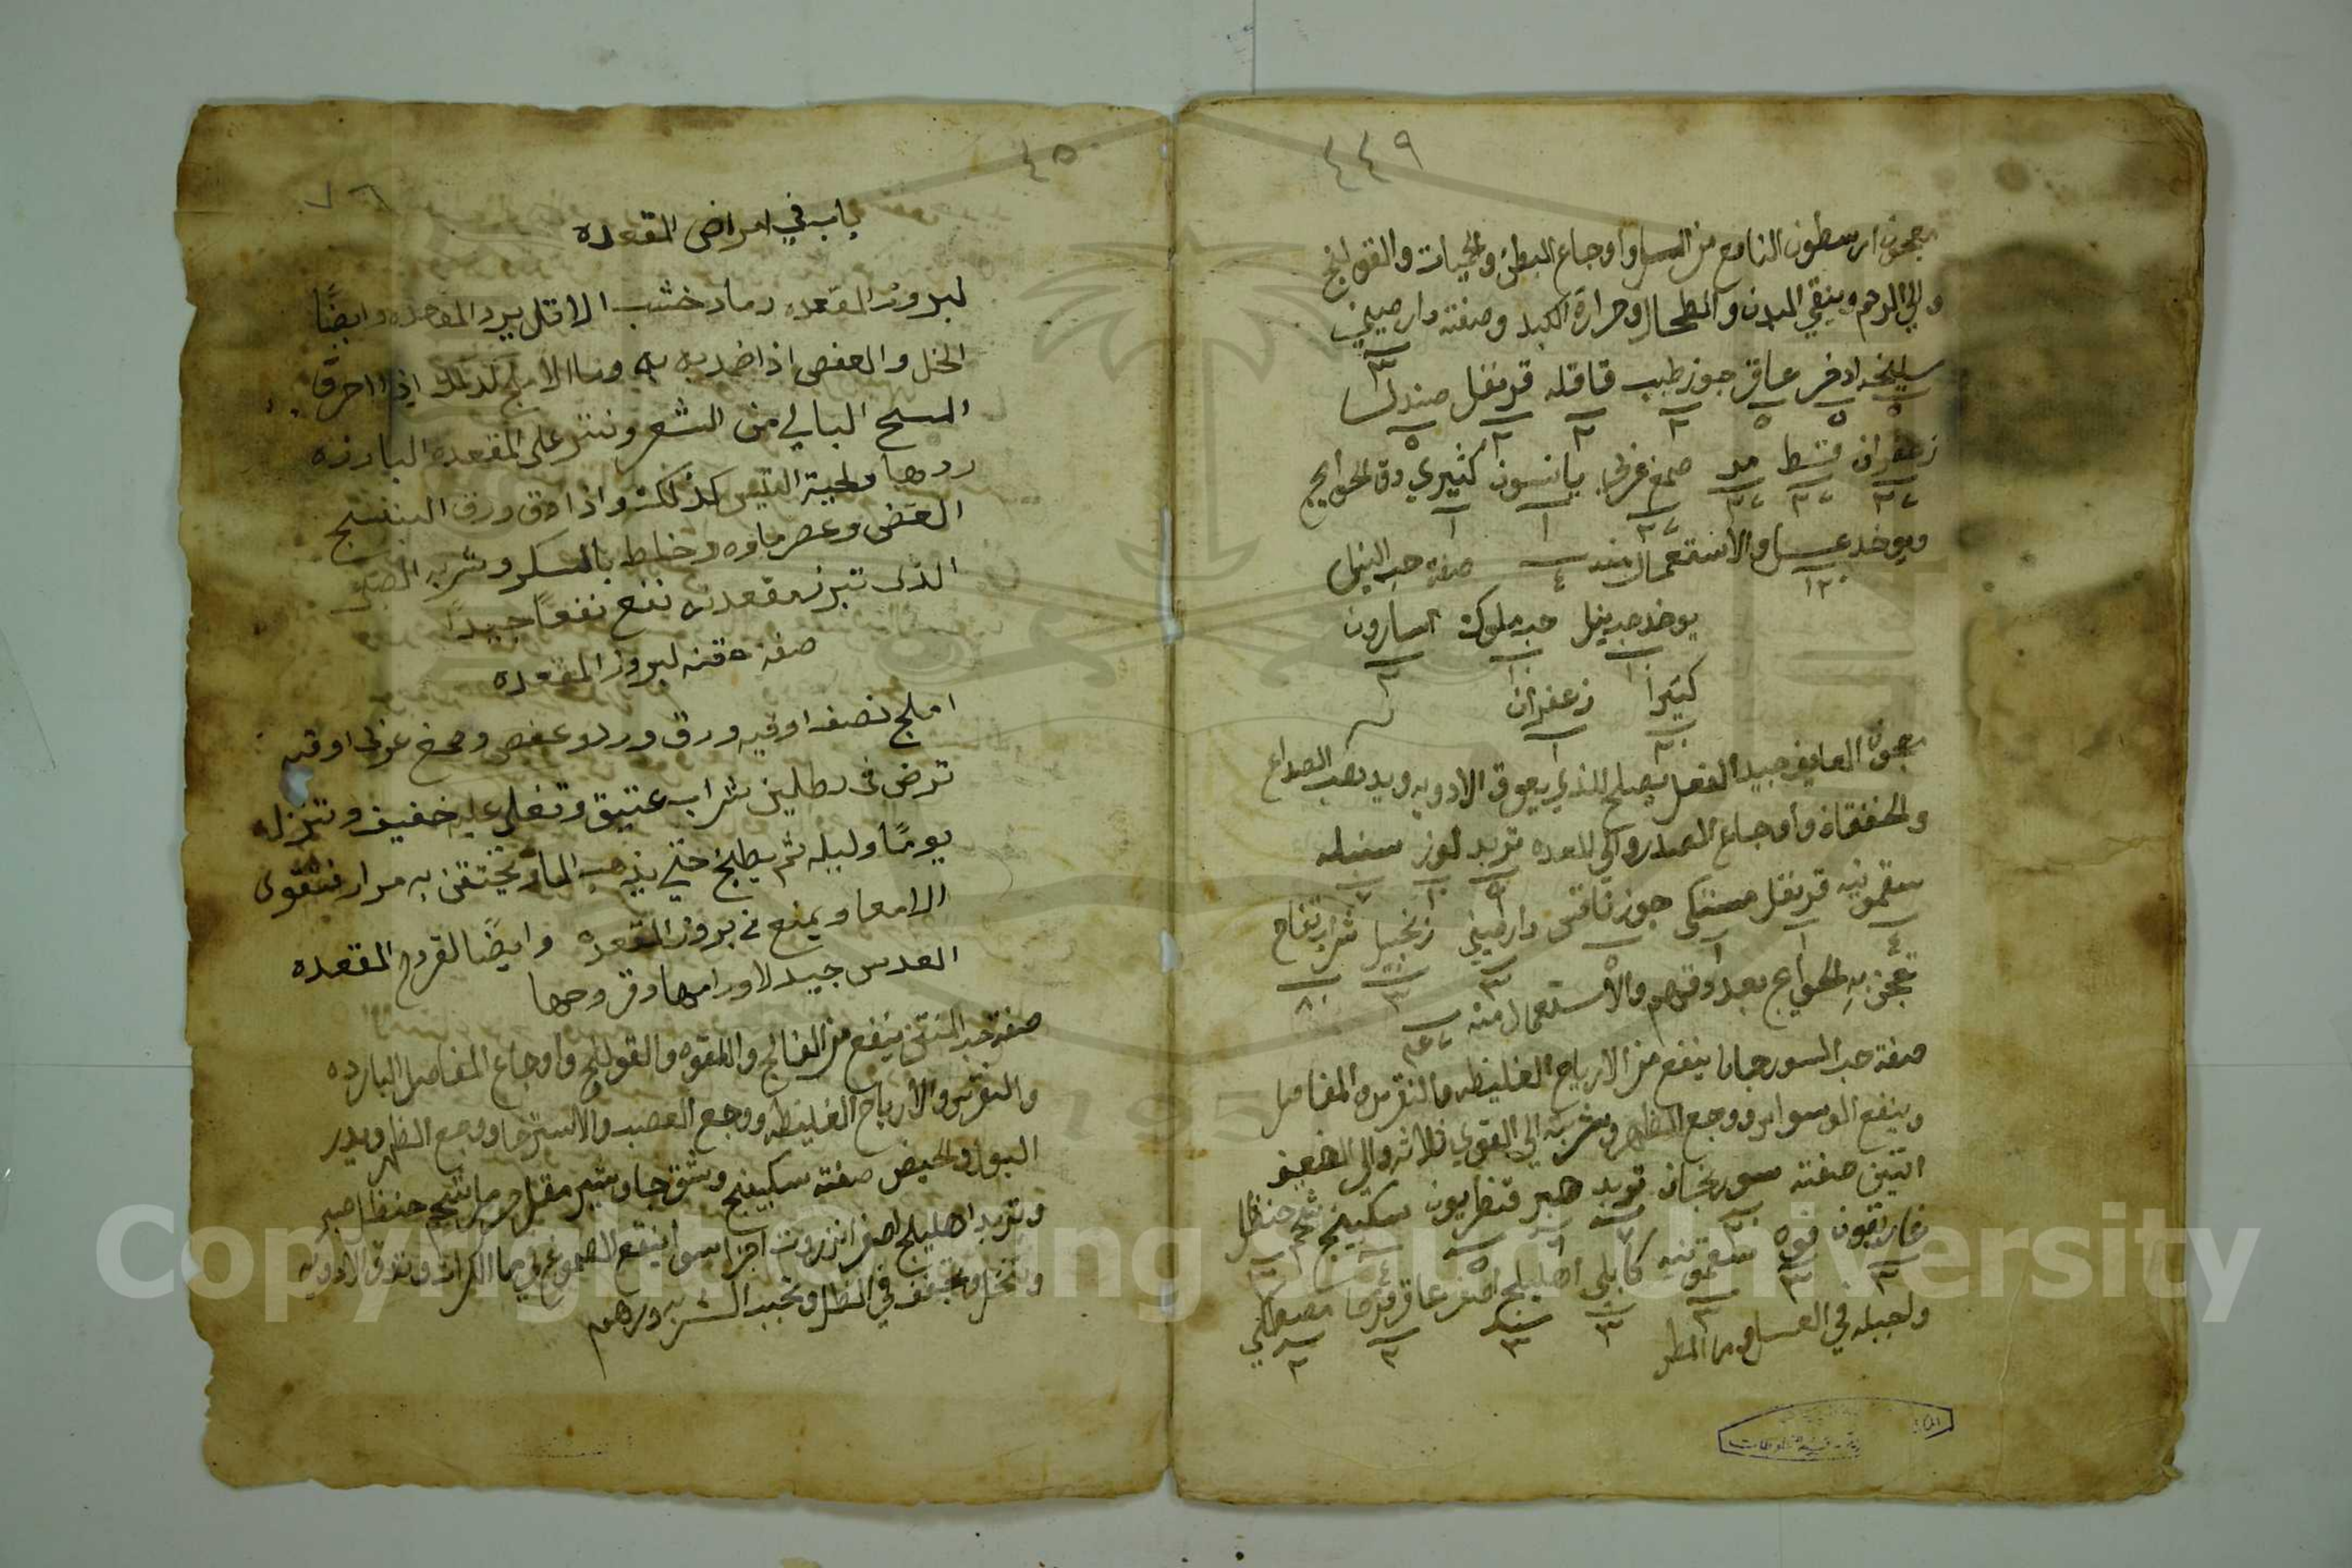 ٤٤٩
معجون ارسطون النافع من السل واوجاع البطن والحميات والقولنج
والي الرحم وينقي البدن والطحال وحرارة الكبد وصفته دارصيني
٣
سليخه اذخر عاقر جوزطيب قاقله قرنفل صندل
٥ ٥ ٥ ٢ ٢ ٢ ٥
زعفران قسط مر صمغ عربي يانسون كثيري دق الحوايج
ويوخذ عسل والاستعمال منه صفة حب النيل
١٢٠ ٤
يوخذ حب نيل حب ملوك اسارون
١٠ ١٠ ٢
كثيرا زعفران
معجون جيد الفعل يصلح للذي يعوق الادويه ويذهب الصداع
والخفقان واوجاع الصدر والي المعده تربد لوز سنبله
سقمونيه قرنفل مستكى جوز دارصيني زنجبيل شراب تفاح
تعجن به الحوايج بعد دقهم والاستعمال منه
صفة حب السورنجان ينفع من الارياح الغليظه والنقرس والمفاصل
وينفع الوسواس ووجع الظهر وشربته الي القوي ثلاثه والي الضعيف
اتنين صفته سورنجان تربد صبر قنطريون سكبينج شحم حنظل
غاريقون فوه سقمونيه كابلي اهليلج اصفر عاقرقرحا مصطكي
في العسل وما المطر
٤٥٠
٧٦
باب في امراض المقعده
لبروز المقعده رماد خشب الاثل يرد المقعده وايضًا
الخل والعفص اذا ضمد به وماء الاملج كذلك اذا احرق
المسح البالي من الشعر ونثر على المقعده البارزه
ردها ولحية التيس كذلك واذا دق ورق البنفسج
الغض وعصر ماوه وخلط بالسكر وشربه الصبى
الذى تبرز مقعدته نفع نفعًا جيدًا
صفة حقنه لبروز المقعده
املج نصف اوقيه ورق ورد وعفص وصمغ عربى اوقيه
ترض فى رطلين شراب عتيق وتغلى غليه خفيف وتترك
يومًا وليله ثم يطبخ حتي يذهب الماء وتحتقن به مرار فتقوى
الامعا ويمنع من بروز المقعده وايضًا لقروح المقعده
العدس جيد لاورامها وقروحها
صفة حب المنتن ينفع من الفالج واللقوه والقولنج واوجاع المفاصل البارده
والنقرس والارياح الغليظه ووجع العصب والاسترخا ووجع الظهر ويدر
البول والحيض صفته سكبينج وشق جاوشير مقل حرمل شحم حنظل صبر
وتربد اهليلج اصفر انزروت اجزا سوا ينقع الصموغ في ما الكراث وتدق الادويه
وتنخل وتجفف في الظل وتحبب الشربه درهم
Copyright © King Saud University
1957